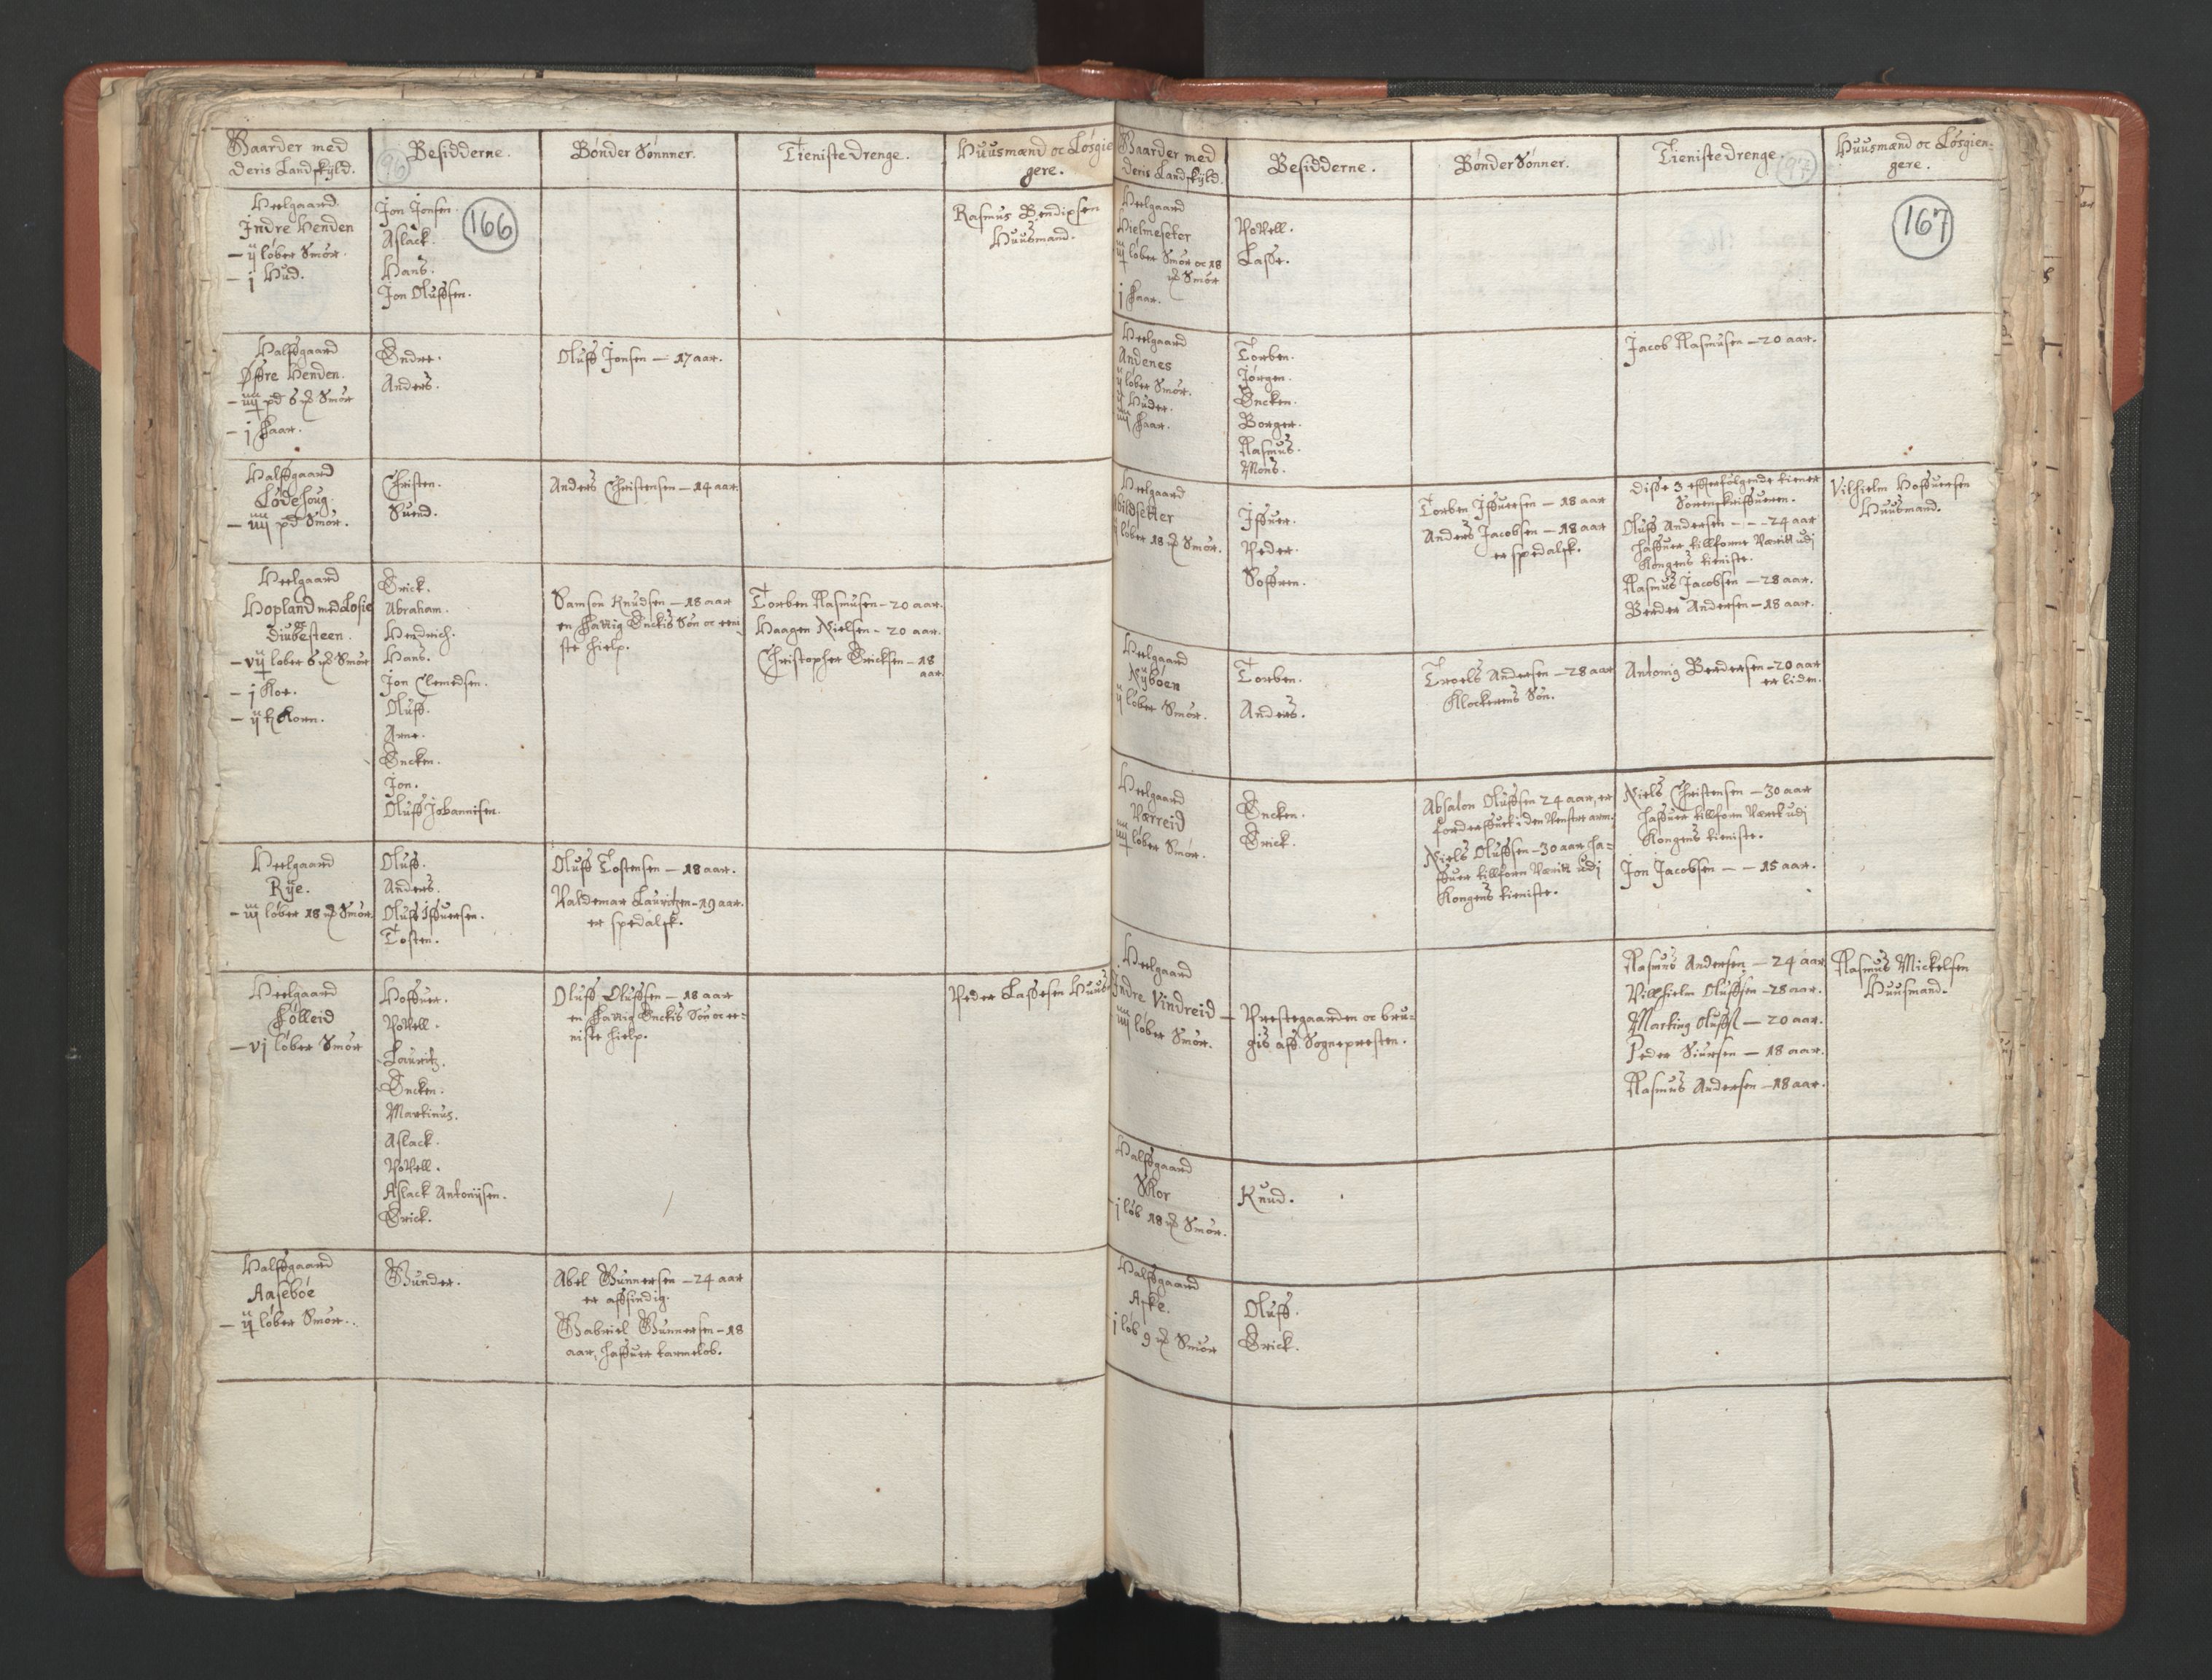 Gaarder med
deris Landskyld.
96
Besidderne.
Bønder Sønnner.
Tieniste drenge.
Huusmænd oc Løsgie
gere.
Heelgaard
Indre Henden
– ij løber Smør.
– j Hud.
Jon Jonsen.
Aslack.
Hans.
Jon Oluffsen.
166
Rasmus Bendixsen
Huusmand.
Halffgaard
Øffre Henden.
– iiij pd 6 Smør
– j Faar.
Endre.
Anders.
Oluff Jonsen – 17 aar.
Halffgaard
Lødehoug.
– iiij pd Smør.
Christen.
Suend.
Anders Christensen – 14 aar.
Heelgaard
Hopland med Losie
oc
Diubesteen.
– vij løber 6 Smør
– j Koe.
– ij Korn.
Erick.
Abraham.
Hendrich.
Hans.
Jon Clemedsen.
Oluff.
Arne.
Encken.
Jon.
Oluff Johannisen.
Samson Knudsen – 18 aar
en fattig Enckis Søn oc eeni
ste hielp.
Torben Rasmusen – 20 aar.
Haagen Nielsen – 20 aar.
Christopher Ericksen – 18
aar.
Heelgaard
Rye.
– iij løber 18 Smør.
Oluff.
Anders.
Oluff Iffuersen.
Tosten.
Oluff Tostensen – 18 aar.
Valdemar Lauritzen – 19 aar.
er spedalsk.
Heelgaard
Fölleid
– vj løber Smør
Hoffuer.
Povell.
Lauritz.
Encken.
Martinus.
Aslack.
Povell.
Aslack Antonijsen.
Erick.
Oluff Oluffsen – 18 aar
en fattig Enckis Søn oc ee-
niste hielp.
Peder Lassesen Huus
Halffgaard
Aasebøe
– ij løber Smør.
Gunder.
Abel Gunnersen – 24 aar
er affsindig.
Gabriel Gunnersen – 18
aar, haffuer tarmeløb.
Gaarder med
deris Landskyld.
Besidderne.
Bønder Sønner.
Tieniste drenge.
97
Huusmænd oc Løsgien-
gere.
Heelgaard
Hielmesetor
iij løber Smør oc 18
Smør
j Faar.
Povell.
Lasse.
167
Heelgaard
Andenes
ij løber Smør.
ij Huder.
iiij Faar.
Torben.
Jørgen.
Encken.
Borger.
Rasmus.
Mons.
Jacob Rasmusen – 20 aar.
Heelgaard
ildsetter
ij løber 18 Smør.
Iffuer.
Peder.
Soffren.
Torben Iffuersen – 18 aar
Anders Jacobsen – 18 aar
er spedalsk.
Disse 3 effterfølgende tiener
Sorenskriffueren.
Oluff Andersen – – – 24 aar
haffuer tillforne Værit udj
Kongens tieniste.
Rasmus Jacobsen – 28 aar.
Berder Andersen – 18 aar.
Vilhielm Hoffuersen
Huusmand.
Heelgaard
Nybøen
ij løber Smør.
Torben.
Anders.
Troels Andersen – 28 aar
Klockerens Søn.
Antonig Berdersen – 20 aar
er liden.
Heelgaard
Værreid
iiij løber Smør.
Encken.
Erick.
Absalon Oluffsen 24 aar, er
forderffuet i den Venstre arm.
Niels Oluffsen – 30 aar ha-
ffuer tillforn Værit udj
Kongens tieniste.
Niels Christensen – 30 aar
haffuer tillforn Værit udj
Kongens tieniste.
Jon Jacobsen – – 15 aar.
Heelgaard
Indre Vindreid –
iiij løber Smør.
Prestegaarden oc bru-
gis aff Sognepresten.
Rasmus Andersen – 24 aar
Villhielm Oluffsen – 28 aar.
Marting Olufß – 20 aar.
Peder Siursen – 18 aar.
Rasmus Andersen – 18 aar.
Rasmus Mickelsen
Huusmand.
Halffgaard
Skor
j løb 18 Smør.
Knud.
Halffgaard
Aske.
j løb 9 Smør
Oluff.
Erick.